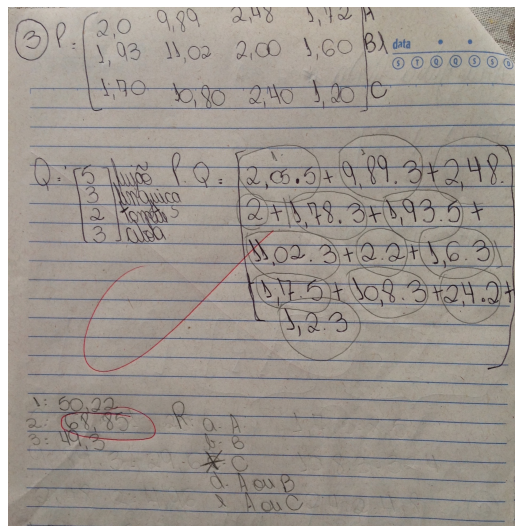 ③ P = [2,0 9,89 2,48 1,72] A
[1,93 11,02 2,00 1,60] B
[1,70 10,80 2,40 1,20] C
data
S T Q Q S S D
Q = [5] feijão
[3] linguiça
[2] tomate
[3] cebola
P. Q = [2,05.5 + 9,89.3 + 2,48.
2 + 1,78.3 + 1,93.5 +
11,02.3 + 2.2 + 1,6.3
1,17.5 + 10,8.3 + 2,4.2 +
1,2.3]
1: 50,22
2: 68,85
3: 49,3
R. a. A
b. B
C
d. A ou B
A ou C